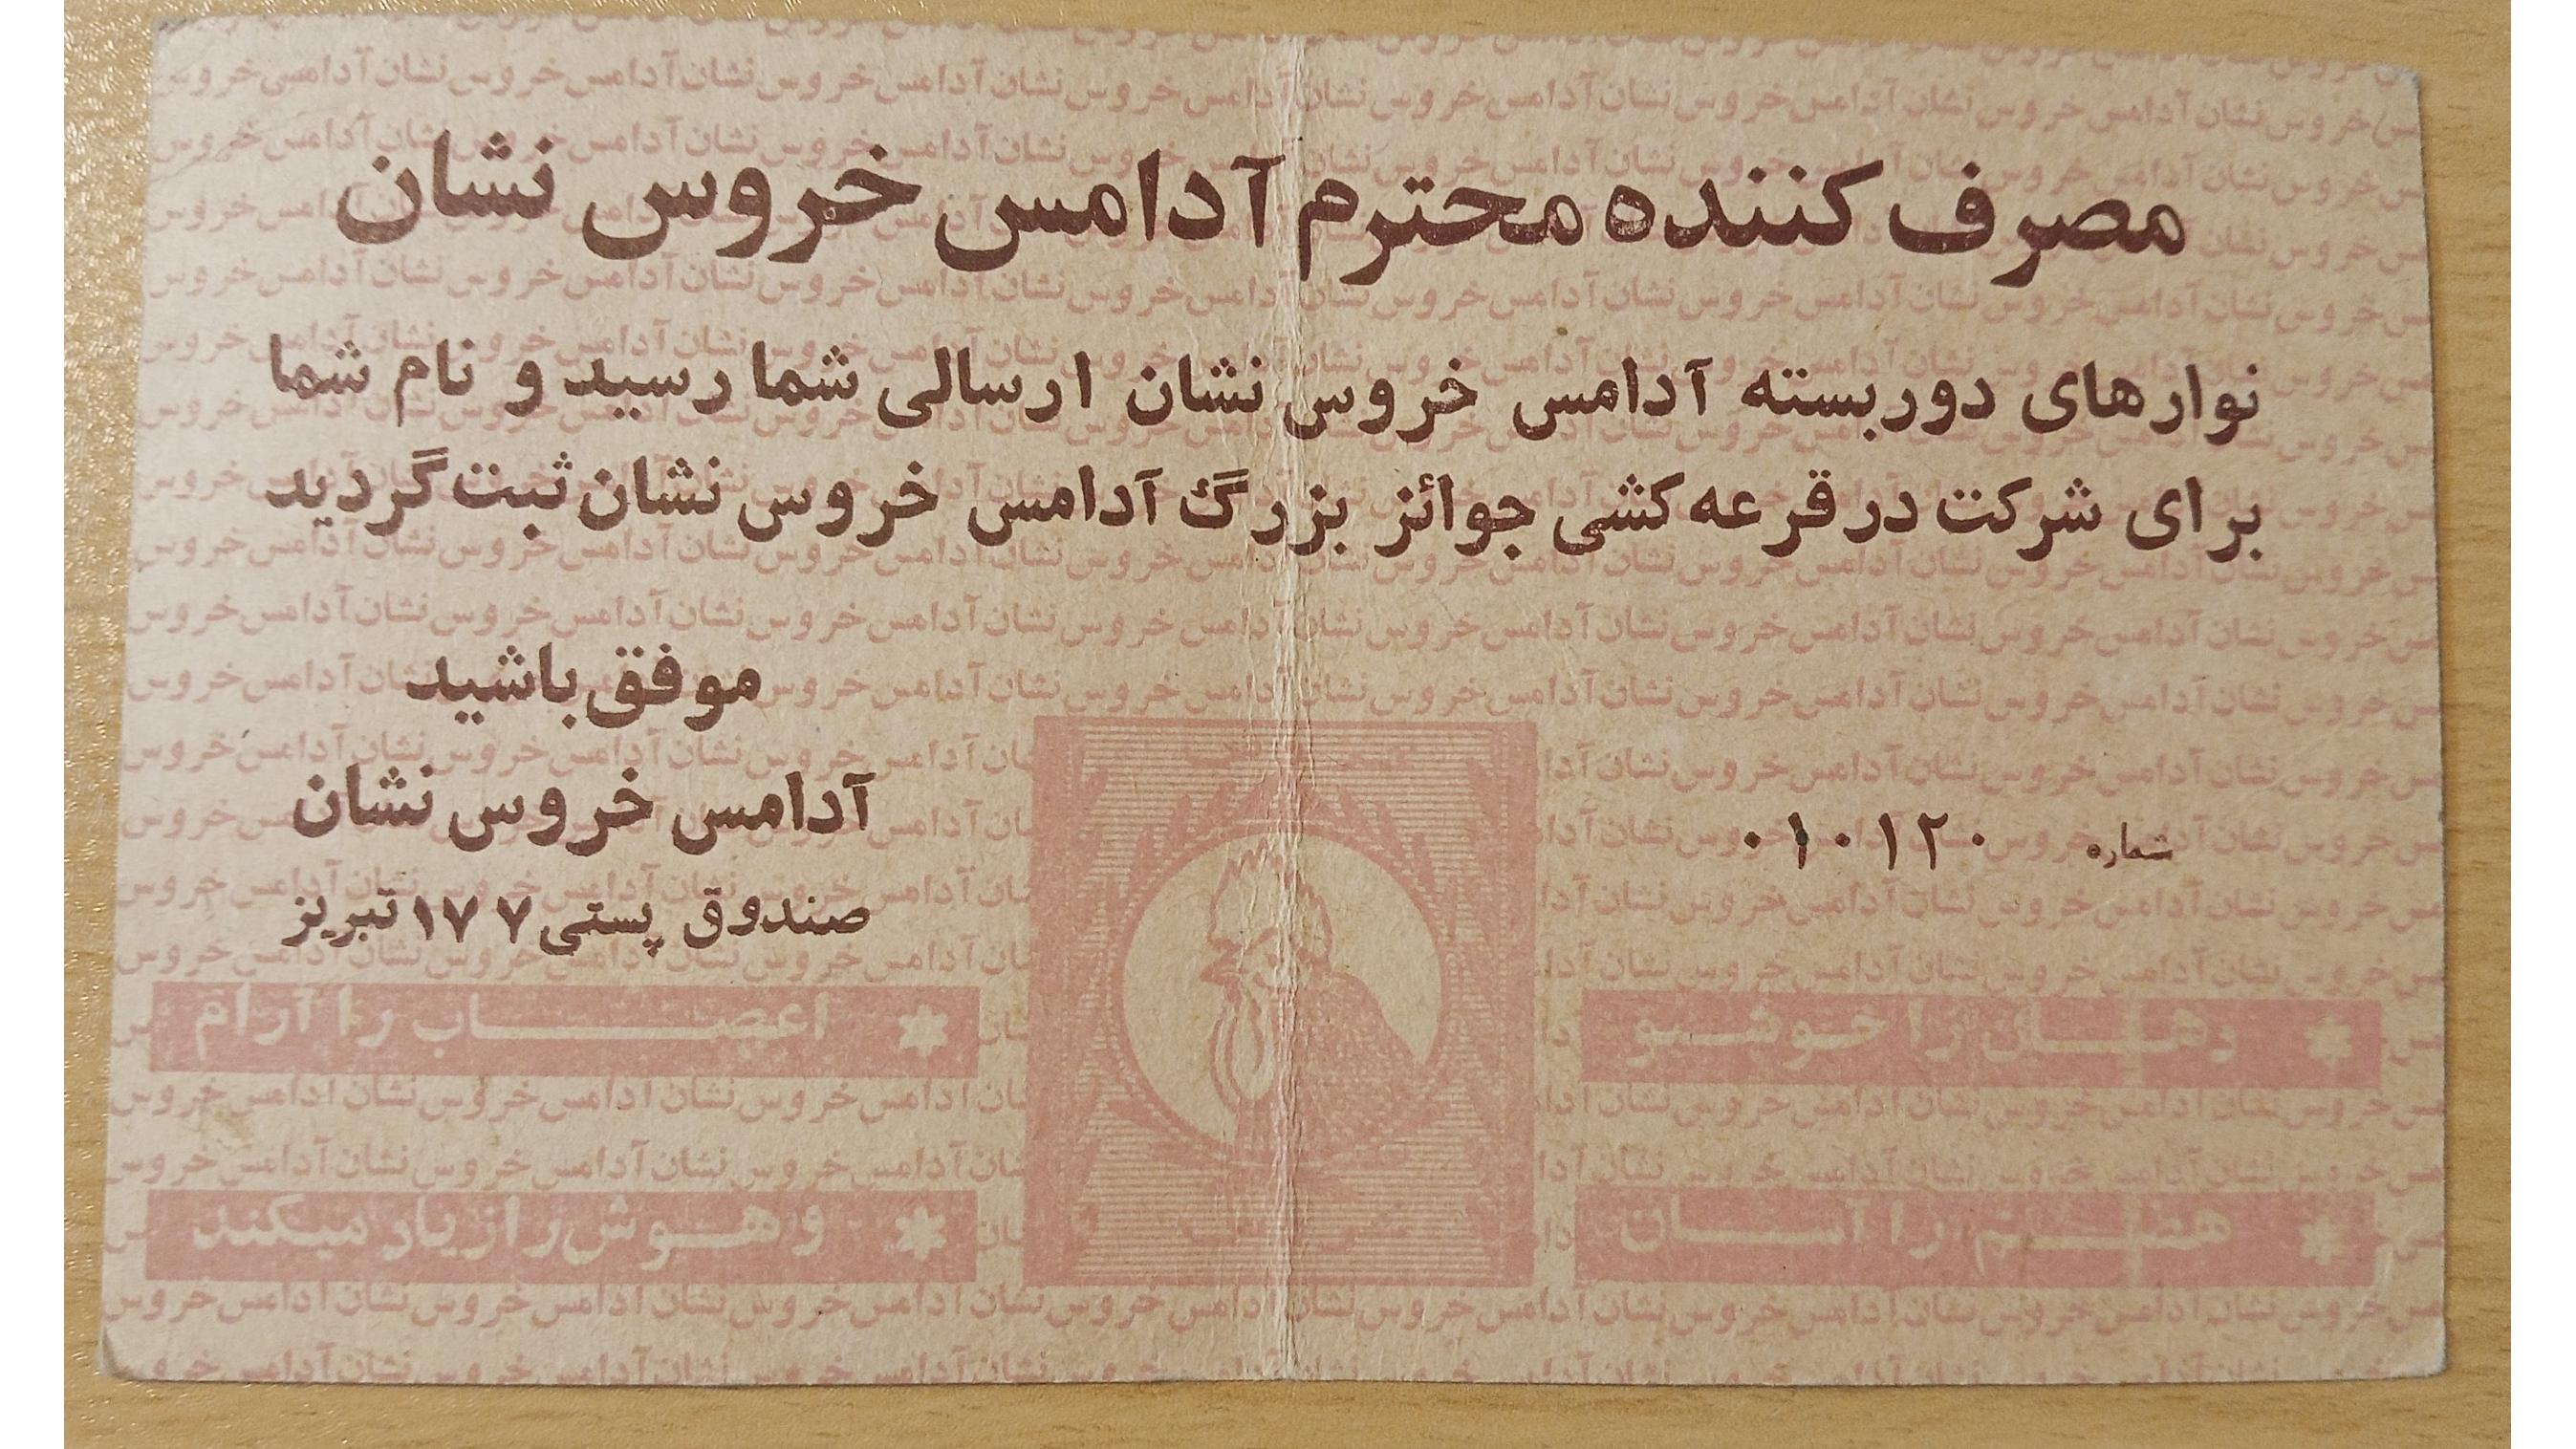 مصرف کننده محترم آدامس خروس نشان
نوارهای دوربسته آدامس خروس نشان ارسالی شما رسید و نام شما
برای شرکت در قرعه کشی جوائز بزرگ آدامس خروس نشان ثبت گردید
موفق باشید
آدامس خروس نشان
صندوق پستی ۱۷۷ تبریز
شماره ۰۱۰۱۲۰
دهان را خوشبو
اعصاب را آرام
هضم را آسان
و هوش را زیاد میکند